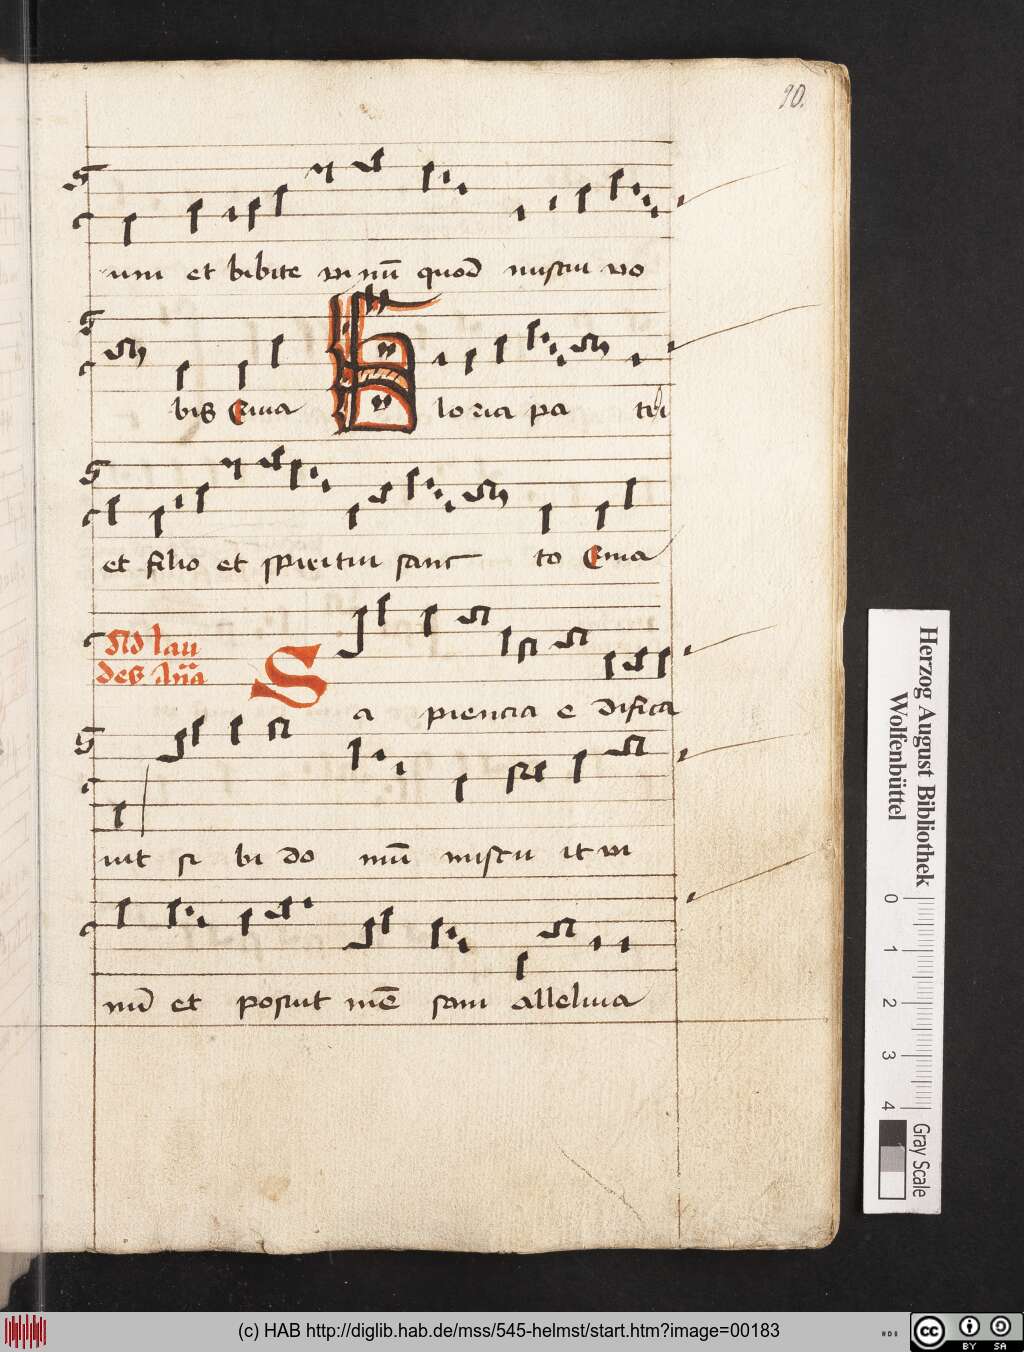 90.
um et bibite vinū quod miscui vo
bis Euua Gloria pa tri
et filio et spiritui sanc to Euua
Ad lau
des Anā
Sa piencia e difica
uit si bi do mū miscu it vi
nū et posuit mē sam alleluia
Herzog August Bibliothek
Wolfenbüttel
0 1 2 3 4
Gray Scale
(c) HAB http://diglib.hab.de/mss/545-helmst/start.htm?image=00183
cc BY SA